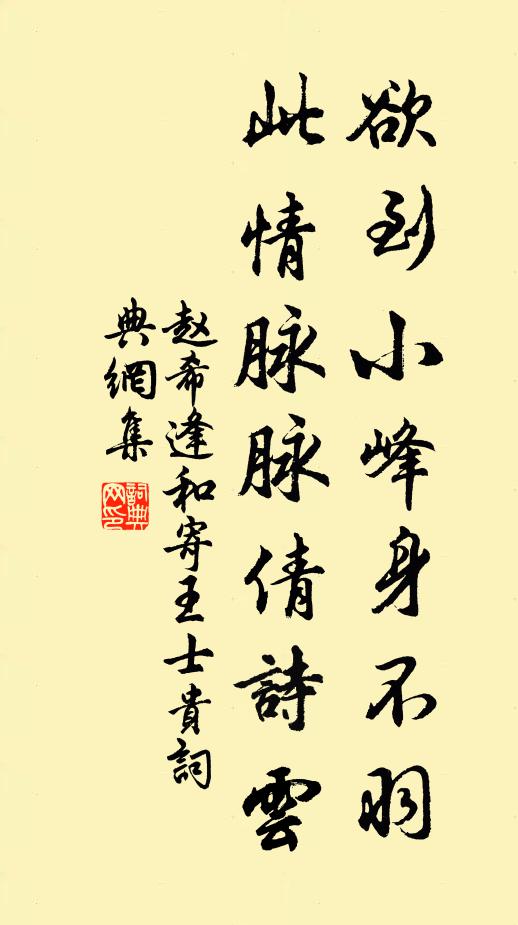 欲到小峰身不羽
此情脉脉倩詩雲
赵希逢和寄王士貴詞
典網集
詞典网印